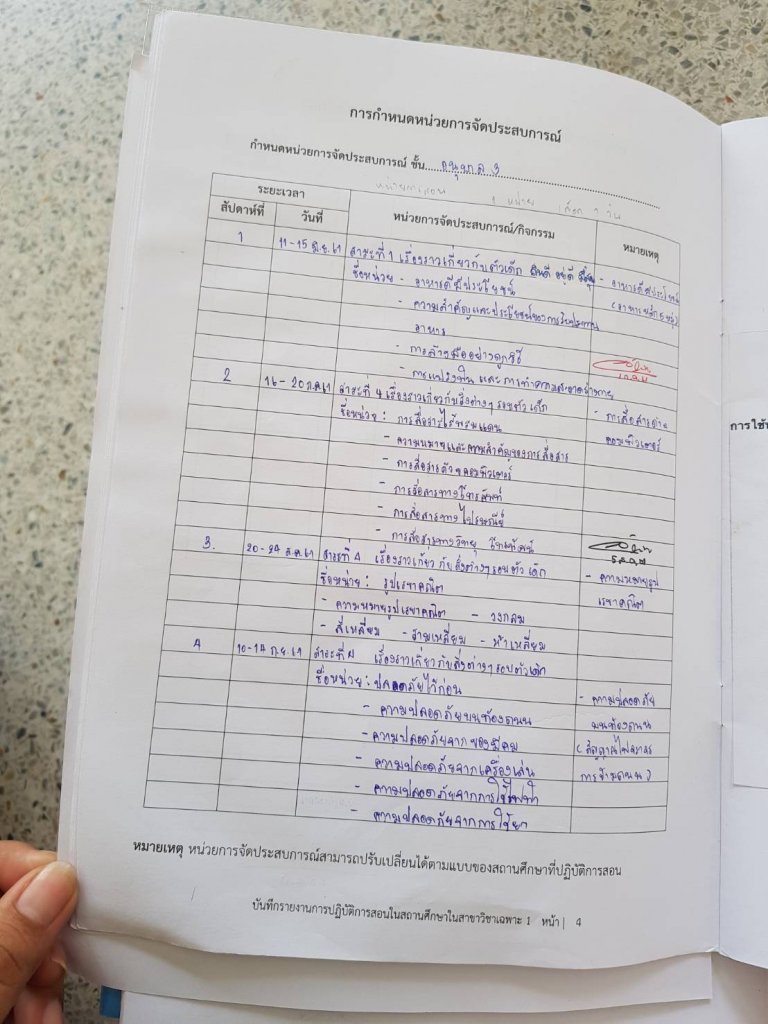 การกำหนดหน่วยการจัดประสบการณ์
กำหนดหน่วยการจัดประสบการณ์ ชั้น อนุบาล 3
หน่วยการสอน 4 หน่วย
ระยะเวลา
สัปดาห์ที่ วันที่ หน่วยการจัดประสบการณ์/กิจกรรม หมายเหตุ
1 11-15 มิ.ย. 61 สาระที่ 1 เรื่องราวเกี่ยวกับตัวเด็ก กินดี อยู่ดี มีสุข - อาหารดีมีประโยชน์
ชื่อหน่วย - อาหารดีมีประโยชน์ (อาหารหลัก 5 หมู่)
- ความสำคัญและประโยชน์ของการรับประทาน
อาหาร
- การล้างมืออย่างถูกวิธี
- การแปรงฟัน และ การทำความสะอาดร่างกาย
2 16-20 ก.ค. 61 สาระที่ 4 เรื่องราวเกี่ยวกับสิ่งต่างๆ รอบตัวเด็ก - การสื่อสารผ่าน
ชื่อหน่วย : การสื่อสารไร้พรมแดน คอมพิวเตอร์
- ความหมายและความสำคัญของการสื่อสาร
- การสื่อสารด้วยคอมพิวเตอร์
- การสื่อสารทางโทรศัพท์
- การสื่อสารทางไปรษณีย์
- การสื่อสารทางวิทยุ โทรทัศน์
3. 20-24 ส.ค. 61 สาระที่ 4 เรื่องราวเกี่ยวกับสิ่งต่างๆ รอบตัวเด็ก - ความหมายรูป
ชื่อหน่วย : รูปเรขาคณิต เรขาคณิต
- ความหมายรูปเรขาคณิต - วงกลม
- สี่เหลี่ยม - สามเหลี่ยม - ห้าเหลี่ยม
4 10-14 ก.ย. 61 สาระที่ 4 เรื่องราวเกี่ยวกับสิ่งต่างๆ รอบตัวเด็ก
ชื่อหน่วย : ปลอดภัยไว้ก่อน - ความปลอดภัย
- ความปลอดภัยบนท้องถนน บนท้องถนน
- ความปลอดภัยจากของมีคม (สัญญาณไฟจราจร
- ความปลอดภัยจากเครื่องเล่น การข้ามถนน)
- ความปลอดภัยจากการใช้ไฟฟ้า
- ความปลอดภัยจากการใช้ยา
หมายเหตุ หน่วยการจัดประสบการณ์สามารถปรับเปลี่ยนได้ตามแบบของสถานศึกษาที่ปฏิบัติการสอน
บันทึกรายงานการปฏิบัติการสอนในสถานศึกษาในสาขาวิชาเฉพาะ 1 หน้า | 4
การใช้